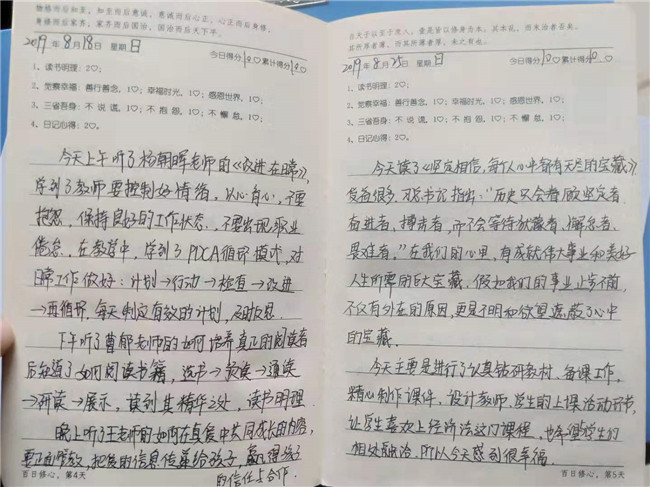 物格而后知至，知至而后意诚，意诚而后心正，心正而后身修，
身修而后家齐，家齐而后国治，国治而后天下平。
2019年8月18日 星期日
今日得分10♡累计得分10♡
1、读书明理：2♡；
2、觉察幸福：善行善念，1♡；幸福时光，1♡；感恩世界，1♡；
3、三省吾身：不说谎，1♡；不抱怨，1♡；不懈怠，1♡；
4、日记心得：2♡。
今天上午听了杨朝晖老师的《改进在日常》，
学到了教师要控制好情绪，以心育心，不要
抱怨，保持良好的工作状态，不要出现职业
倦怠，在教学中，学到了PDCA循环模式，对
日常工作做好：计划→行动→检查→改进
→再循环，每天制定有效的计划，及时反思
下午听了曹郁老师的如何培养真正的阅读者
后知道了如何阅读书籍，选书→教读→通读
→研读→展示，读到其精华之处，读书明理
晚上听了王老师的如何在真爱中共同成长的内容，
要正面管教，把爱的信息传递给孩子，赢得孩子
的信任与合作
百日修心，第4天
自天子以至于庶人，壹是皆以修身为本。其本乱，而末治者否矣。
其所厚者薄，而其所薄者厚，未之有也。
2019年8月25日 星期日
今日得分10♡累计得分10♡
1、读书明理：2♡；
2、觉察幸福：善行善念，1♡；幸福时光，1♡；感恩世界，1♡；
3、三省吾身：不说谎，1♡；不抱怨，1♡；不懈怠，1♡；
4、日记心得：2♡。
今天读了《坚定相信，每个人心中都有无尽的宝藏》
受益很多，习书记指出："历史只会眷顾坚定者、
奋进者，搏击者，而不会等待犹豫者，懈怠者、
畏难者。"在我们的心里，有成就伟大事业和美好
人生所需的巨大宝藏，假如我们的事业止步不前，
不仅有外在的原因，更是不明和欲望遮蔽了心中
的宝藏。
今天主要是进行了认真钻研教材、备课工作，
精心制作课件，设计教师，学生的上课活动环节，
让学生喜欢上经济法这门课程，也希望学生们
相处融洽，所以今天感到很幸福
百日修心，第5天